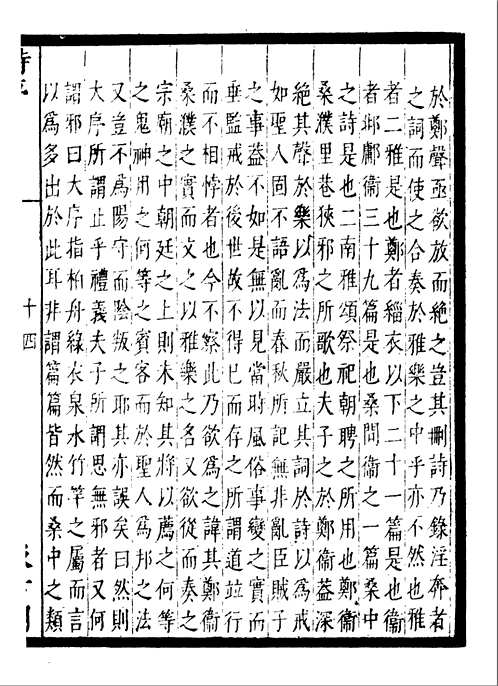 於鄭聲亟欲放而絶之豈其刪詩乃錄淫奔者
之詞而使之合奏於雅樂之中乎亦不然也雅
者二雅是也鄭者緇衣以下二十一篇是也衞
者邶鄘衞三十九篇是也桑間衞之一篇桑中
之詩是也二南雅頌祭祀朝聘之所用也鄭衞
桑濮里巷狹邪之所歌也夫子之於鄭衞葢深
絶其聲於樂以爲法而嚴立其詞於詩以爲戒
如聖人固不語亂而春秋所記無非亂臣賊子
之事葢不如是無以見當時風俗事變之實而
垂監戒於後世故不得已而存之所謂道竝行
而不相悖者也今不察此乃欲爲之諱其鄭衞
桑濮之實而文之以雅樂之名又欲從而奏之
宗廟之中朝廷之上則未知其將以薦之何等
之鬼神用之何等之賓客而於聖人爲邦之法
又豈不爲陽守而隂叛之耶其亦誤矣曰然則
大序所謂止乎禮義夫子所謂思無邪者又何
謂邪曰大序指柏舟緑衣泉水竹竿之屬而言
以爲多出於此耳非謂篇篇皆然而桑中之類
十四